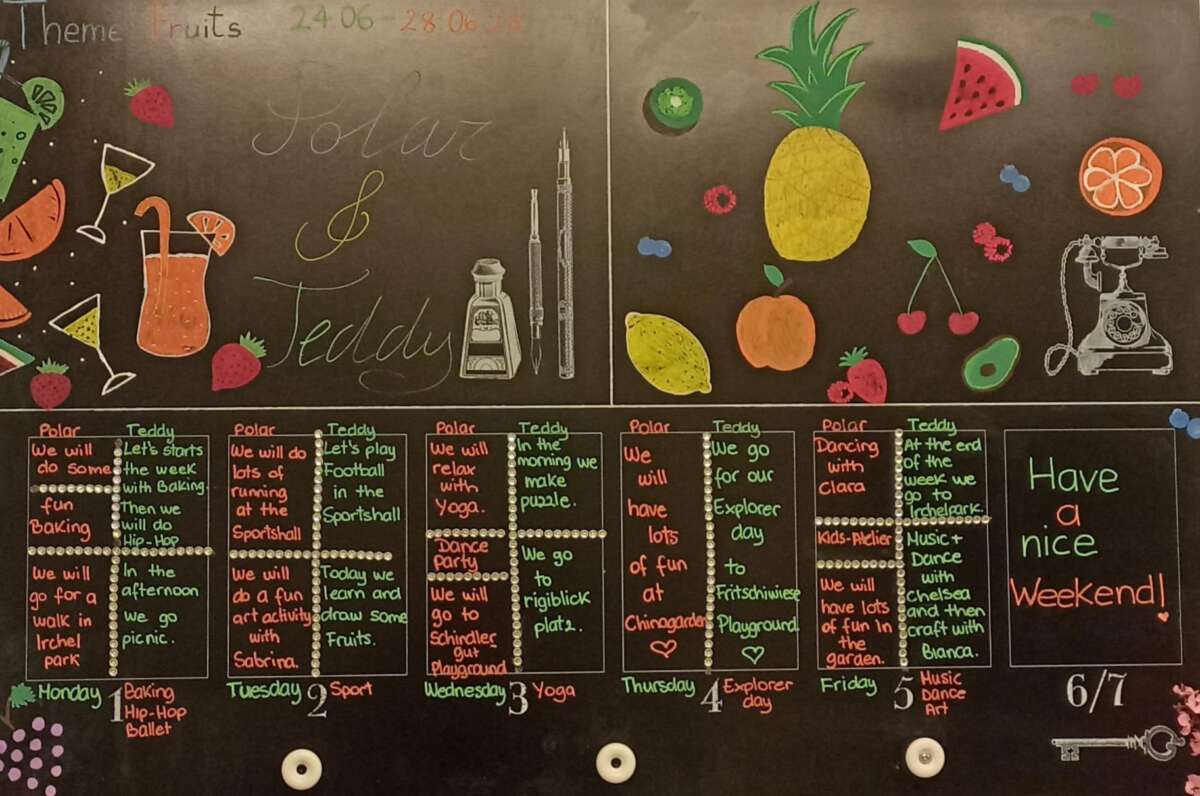 Theme Fruits 24.06 - 28.06.24
Polar
&
Teddy
Polar
We will
do some
fun
Baking
We will
go for a
walk in
Irchel
park
Teddy
Let's starts
the week
with Baking.
Then we
will do
Hip-Hop
In the
afternoon
we go
picnic.
Polar
We will do
lots of
running
at the
Sportshall
We will
do a fun
art activity
with
Sabrina.
Teddy
Let's play
Football
in the
Sportshall
Today we
learn and
draw some
Fruits.
Polar
We will
relax
with
Yoga.
Dance
party
We will
go to
Schindler
gut
Playground
Teddy
In the
morning we
make
puzzle.
We go
to
rigiblick
platz.
Polar
We
will
have
lots
of fun
at
Chinagarden
Teddy
We go
for our
Explorer
day
to
Fritschiwiese
Playground
Polar
Dancing
with
Clara
Kids-Atelier
We will
have lots
of fun in
the
garden.
Teddy
At the end
of the
week we
go to
Irchelpark.
Music+
Dance
with
Chelsea
and then
craft with
Bianca.
Have
a
nice
Weekend!
Monday 1 Baking
Hip-Hop
Ballet
Tuesday 2 Sport
Wednesday 3 Yoga
Thursday 4 Explorer
day
Friday 5 Music
Dance
Art
6/7